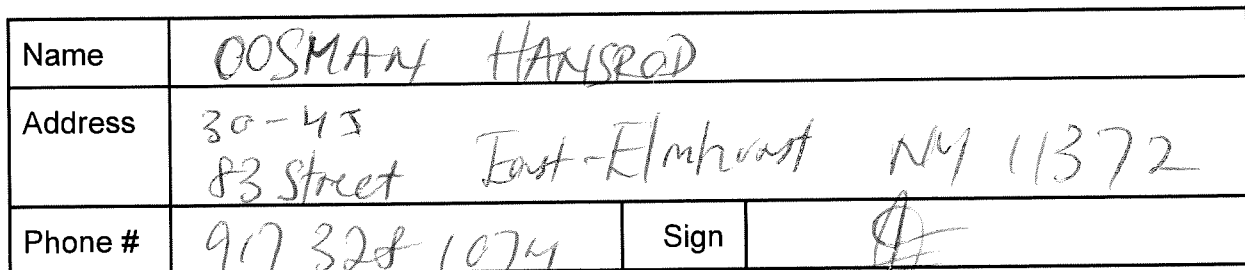 Name OOSMAN HANSROD
Address 30-45
83 Street East-Elmhurst NY 11372
Phone # 917 328 1074 Sign